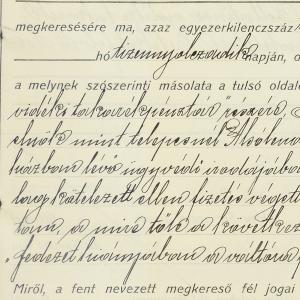 megkeresésére ma, azaz egyezerkilenczszáz
hó tizennyolczadik napján, d
a melynek szószerinti másolata a túlsó oldal
vidéki takarékpénztár részére,
elnök mint telepesnél Alsólend
házban lévő ügyvédi irodájába
lag kötelezett ellen fizetés végett
tam, a mire tőle a következ
„fedezet hiányában a váltóna
Miről, a fent nevezett megkereső fél jogai